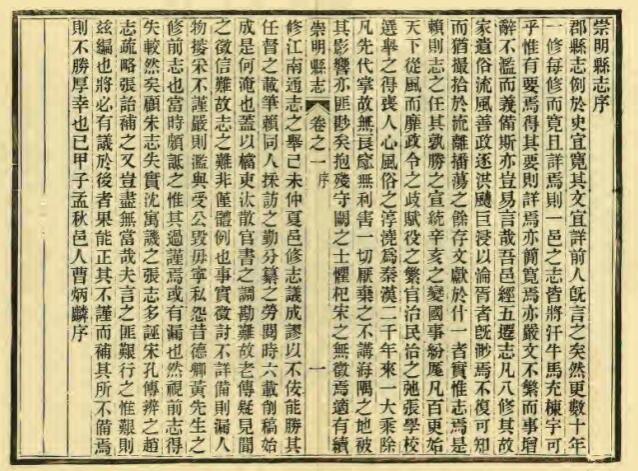 崇明縣志序
郡縣志例於史宜寬其文宜詳前人旣言之矣然更數十年
一修每修而寬且詳焉則一邑之志皆將汗牛馬充棟宇可
乎惟有要焉得其要則詳焉亦簡寬焉亦嚴文不繁而事增
辭不濫而義備斯亦豈易言哉吾邑經五遷志凡八修其故
家遺俗流風善政逐洪颷巨浸以淪胥者旣渺焉不復可知
而猶撮拾於流離播蕩之餘存文獻於什一者實惟志焉是
賴則志之任其孰勝之宣統辛亥之變國事紛厖凡百更始
天下從風而靡政令之歧賦役之繁官治民治之弛張學校
選舉之得喪人心風俗之淳澆爲秦漢二千年來一大乘除
凡先代掌故無良窳無利害一切厭棄之不講海隅之地被
其影響亦匪尠矣抱殘守闕之士懼杞宋之無徵焉適有續
崇明縣志 卷之一 序 一
修江南通志之舉己未仲夏邑修志議成謬以不佞能勝其
任督之載筆賴同人採訪之勤分纂之勞閱時六載創稿始
成是何淹也蓋以檔吏汰散官書之調勘難故老傳疑見聞
之徵信難故志之難非僅體例也事實徵討不詳備則漏人
物捃采不謹嚴則濫與受公毀毋寧私怨昔德卿黃先生之
修前志也當時頗詆之惟其過謹焉或有漏也然視前志得
失較然矣顧朱志失實沈寓譏之張志多誣宋孔傳辨之趙
志疏略張詒補之又豈盡無當哉夫言之匪艱行之惟艱則
茲編也將必有議於後者果能正其不謹而補其所不備焉
則不勝厚幸也已甲子孟秋邑人曹炳麟序